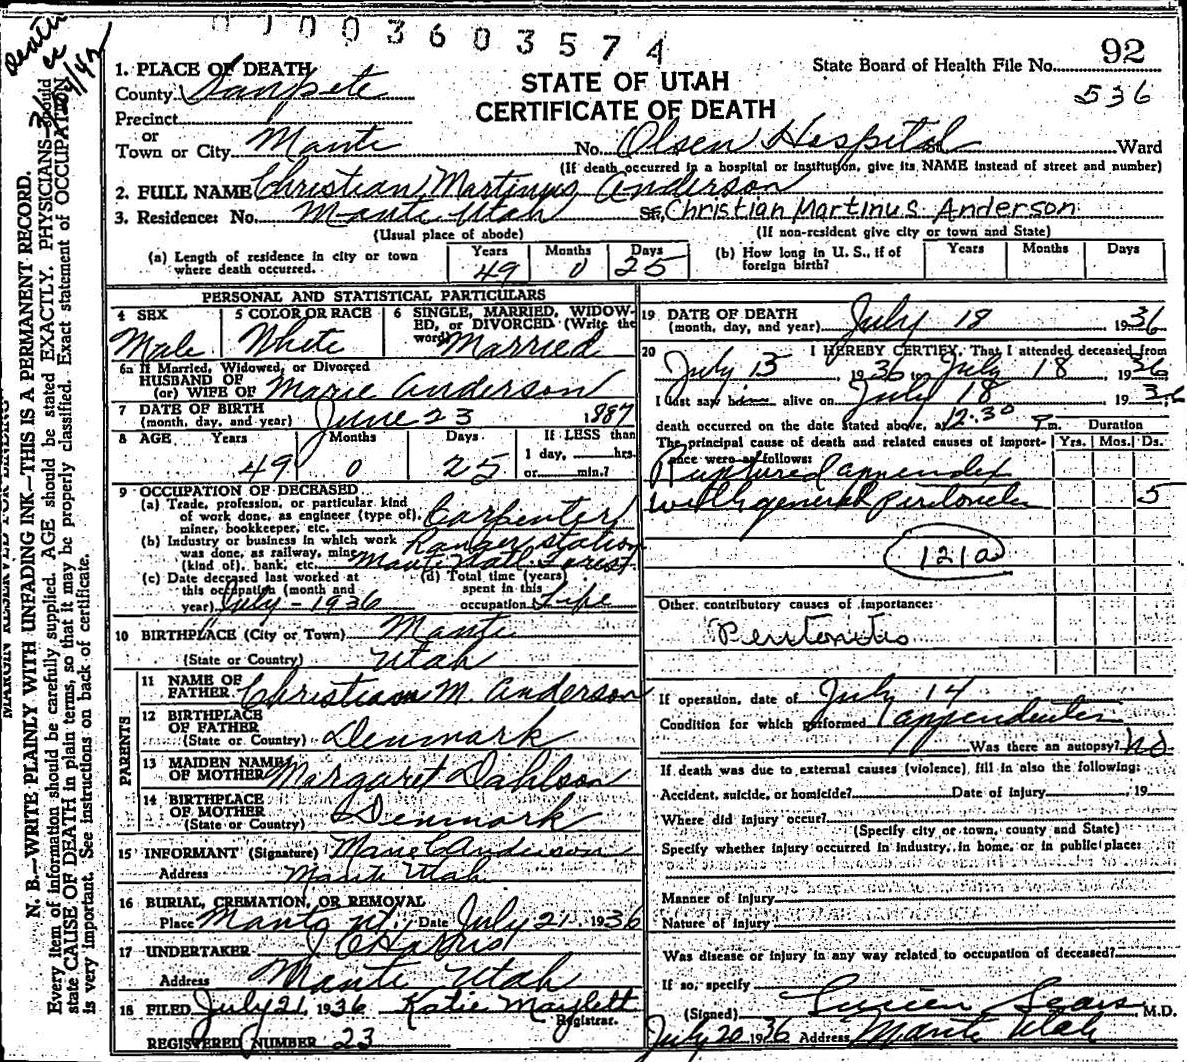 0 1 0 0 3 6 0 3 5 7 4
92
State Board of Health File No.
536
STATE OF UTAH
CERTIFICATE OF DEATH
1. PLACE OF DEATH
County Sanpete
Precinct "
or
Town or City Manti No. Olsen Hospital Ward
(If death occurred in a hospital or institution, give its NAME instead of street and number)
2. FULL NAME Christian Martinus Anderson
3. Residence: No. Manti Utah St. Christian Martinus Anderson
(Usual place of abode) (If non-resident give city or town and State)
(a) Length of residence in city or town where death occurred. Years 49 Months 0 Days 25
(b) How long in U. S., if of foreign birth? Years Months Days
PERSONAL AND STATISTICAL PARTICULARS
4 SEX Male
5 COLOR OR RACE White
6 SINGLE, MARRIED, WIDOWED, or DIVORCED (Write the word) Married
6a If Married, Widowed, or Divorced
HUSBAND OF
(or) WIFE OF Marie Anderson
7 DATE OF BIRTH
(month, day, and year) June 23 1887
8 AGE Years 49 Months 0 Days 25 If LESS than 1 day, hrs. or min.?
9 OCCUPATION OF DECEASED
(a) Trade, profession, or particular kind of work done, as engineer (type of), miner, bookkeeper, etc. Carpenter
(b) Industry or business in which work was done, as railway, mine (kind of), bank, etc. Ranger station Manti Natl. Forest
(c) Date deceased last worked at this occupation (month and year) July - 1936
(d) Total time (years) spent in this occupation Life
10 BIRTHPLACE (City or Town) Manti
(State or Country) Utah
PARENTS
11 NAME OF FATHER Christian M. Anderson
12 BIRTHPLACE OF FATHER
(State or Country) Denmark
13 MAIDEN NAME OF MOTHER Margaret Dahlson
14 BIRTHPLACE OF MOTHER
(State or Country) Denmark
15 INFORMANT (Signature) Marie C Anderson
Address Manti Utah
16 BURIAL, CREMATION, OR REMOVAL
Place Manti, ut. Date July 21, 1936
17 UNDERTAKER J C Harris
Address Manti Utah
18 FILED July 21, 1936 Katie Maylett
Registrar.
REGISTERED NUMBER 23
19 DATE OF DEATH
(month, day, and year) July 18 1936
20 I HEREBY CERTIFY, That I attended deceased from
July 13, 1936 to July 18 1936
I last saw him alive on July 18 1936
death occurred on the date stated above, at 12:30 P m. Duration
The principal cause of death and related causes of importance were as follows: Yrs. Mos. Ds.
Ruptured appendix
with general peritonitis 5
121a
Other contributory causes of importance:
Peritonitis
If operation, date of July 14
Condition for which performed appendicitis
Was there an autopsy? No
If death was due to external causes (violence), fill in also the following:
Accident, suicide, or homicide? Date of injury 19
Where did injury occur?
(Specify city or town, county and State)
Specify whether injury occurred in industry, in home, or in public place:
Manner of Injury
Nature of Injury
Was disease or injury in any way related to occupation of deceased?
If so, specify
(Signed) Lucien Sears M.D.
July 20 1936 Address Manti Utah
MARGIN RESERVED FOR BINDING
N. B.—WRITE PLAINLY WITH UNFADING INK—THIS IS A PERMANENT RECORD.
Every item of information should be carefully supplied. AGE should be stated EXACTLY. PHYSICIANS should
state CAUSE OF DEATH in plain terms, so that it may be properly classified. Exact statement of OCCUPATION
is very important. See instructions on back of certificate.